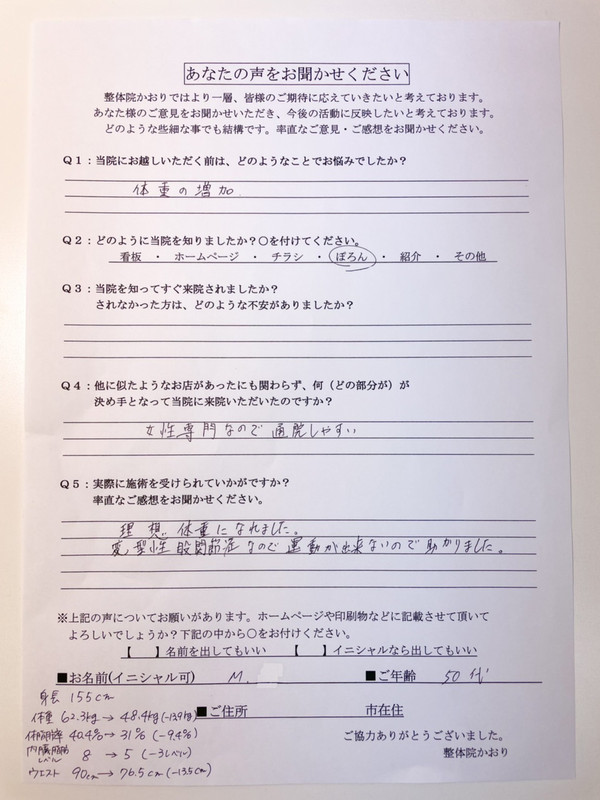 あなたの声をお聞かせください
整体院かおりではより一層、皆様のご期待に応えていきたいと考えております。
あなた様のご意見をお聞かせいただき、今後の活動に反映したいと考えております。
どのような些細な事でも結構です。率直なご意見・ご感想をお聞かせください。
Q1：当院にお越しいただく前は、どのようなことでお悩みでしたか？
体重の増加
Q2：どのように当院を知りましたか？〇を付けてください。
看板 ・ ホームページ ・ チラシ ・ ぽろん ・ 紹介 ・ その他
Q3：当院を知ってすぐ来院されましたか？
されなかった方は、どのような不安がありましたか？
Q4：他に似たようなお店があったにも関わらず、何（どの部分が）が
決め手となって当院に来院いただいたのですか？
女性専門なので通院しやすい
Q5：実際に施術を受けられていかがですか？
率直なご感想をお聞かせください。
理想体重になれました。
変型性股関節症なので運動が出来ないので助かりました。
※上記の声についてお願いがあります。ホームページや印刷物などに記載させて頂いて
よろしいでしょうか？下記の中から〇をお付けください。
【　】名前を出してもいい 【　】イニシャルなら出してもいい
■お名前(イニシャル可) M. ■ご年齢 50代
身長 155cm
体重 62.3kg→48.4kg(-13.9kg) ■ご住所 市在住
体脂肪率 40.4%→31%(-9.4%) ご協力ありがとうございました。
内臓脂肪レベル 8→5(-3レベル) 整体院かおり
ウエスト 90cm→76.5cm(-13.5cm)